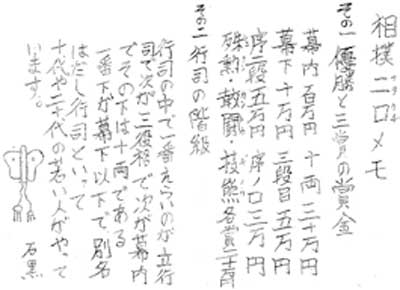 相撲二口メモ
その一優勝と三賞の賞金
幕内 百万円 十両 三十万円
幕下 十万円 三段目 五万円
序二段 五万円 序ノ口 三万円
殊勲・敢闘・技能各賞二十万円
その二行司の階級
行司の中で一番えらいのが立行
司で次が三役格で次が幕内
でその下は十両である
一番下が幕下以下で別名
はだし行司といって
十代や二十代の若い人がやって
います。
石黒